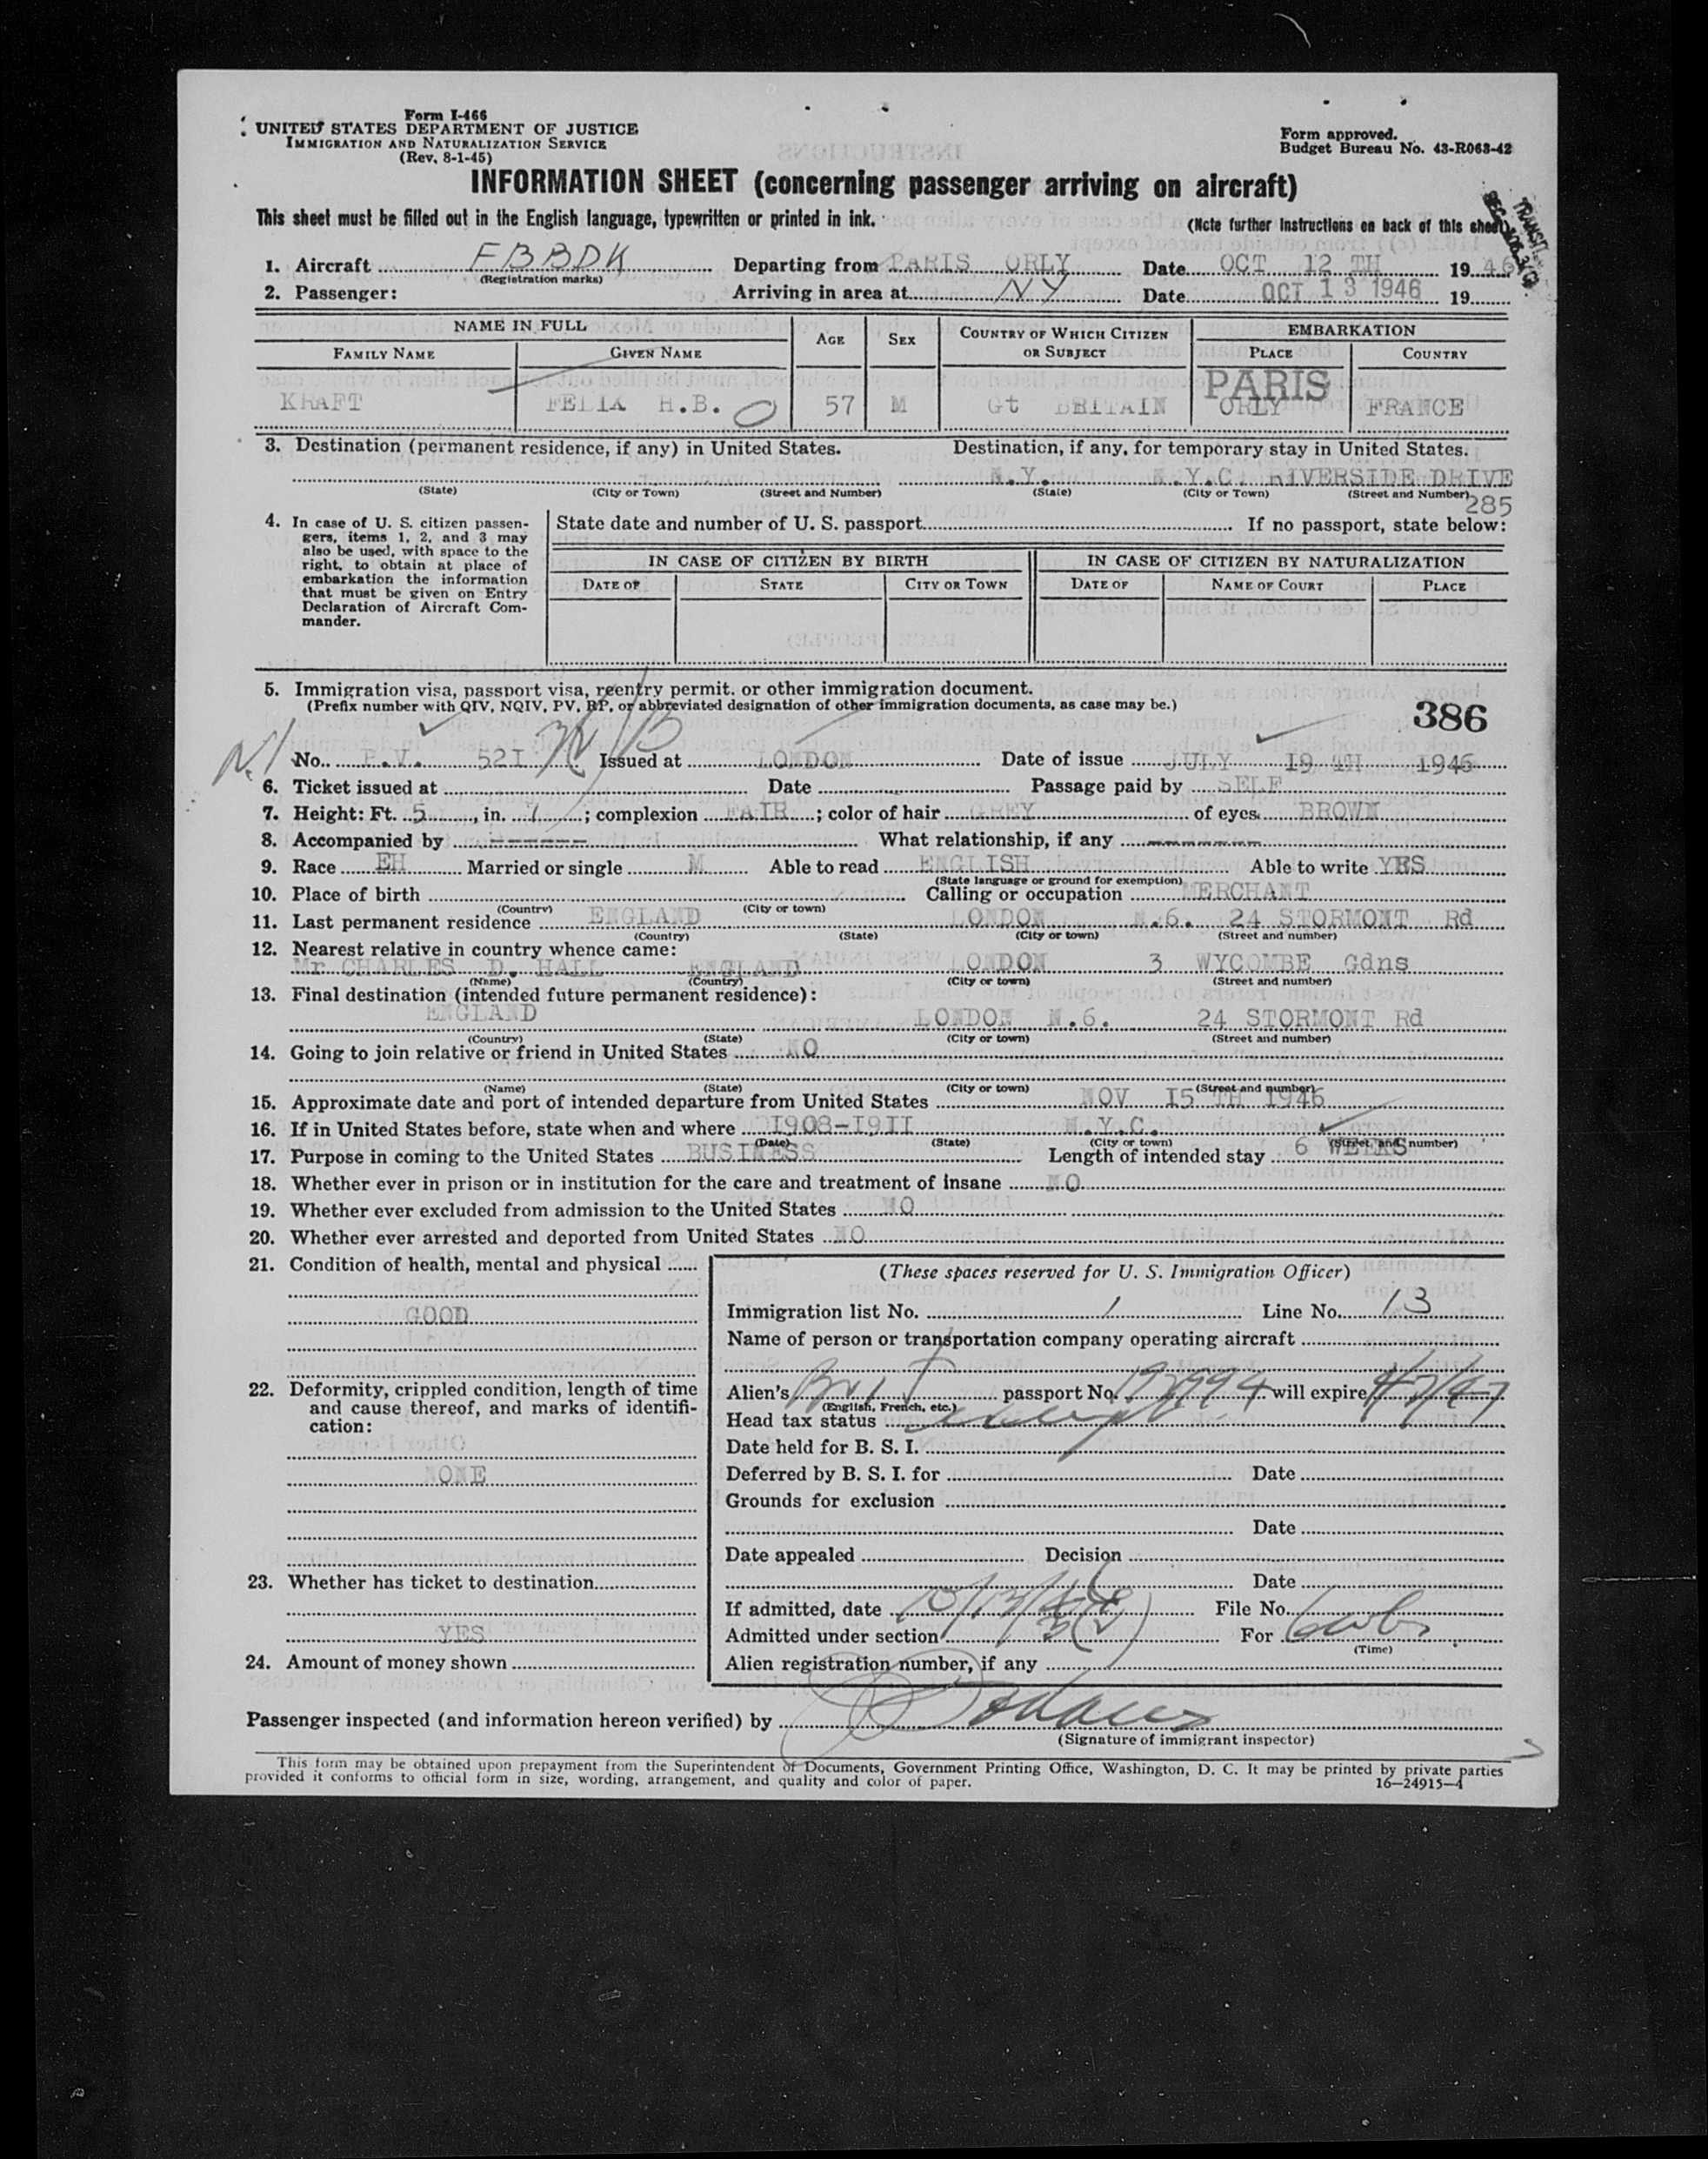 Form I-466
UNITED STATES DEPARTMENT OF JUSTICE
IMMIGRATION AND NATURALIZATION SERVICE
(Rev. 8-1-45)
Form approved.
Budget Bureau No. 43-R063-42
INFORMATION SHEET (concerning passenger arriving on aircraft)
This sheet must be filled out in the English language, typewritten or printed in ink.
(Note further instructions on back of this sheet)
1. Aircraft FBBDK Departing from PARIS ORLY Date OCT 12 TH 1946
(Registration marks)
2. Passenger: Arriving in area at NY Date OCT 13 1946 19
NAME IN FULL AGE SEX COUNTRY OF WHICH CITIZEN OR SUBJECT EMBARKATION
FAMILY NAME GIVEN NAME PLACE COUNTRY
PARIS
KRAFT FELIX H.B. 57 M Gt BRITAIN ORLY FRANCE
3. Destination (permanent residence, if any) in United States. Destination, if any, for temporary stay in United States.
N.Y. N.Y.C. RIVERSIDE DRIVE
(State) (City or Town) (Street and Number) (State) (City or Town) (Street and Number)
285
4. In case of U. S. citizen passen-
gers, items 1, 2, and 3 may
also be used, with space to the
right, to obtain at place of
embarkation the information
that must be given on Entry
Declaration of Aircraft Com-
mander.
State date and number of U. S. passport If no passport, state below:
IN CASE OF CITIZEN BY BIRTH IN CASE OF CITIZEN BY NATURALIZATION
DATE OF STATE CITY OR TOWN DATE OF NAME OF COURT PLACE
5. Immigration visa, passport visa, reentry permit, or other immigration document.
(Prefix number with QIV, NQIV, PV, RP, or abbreviated designation of other immigration documents, as case may be.)
386
No. P.V. 52I Issued at LONDON Date of issue JULY I9 TH 1946
6. Ticket issued at Date Passage paid by SELF
7. Height: Ft. 5, in. 7; complexion FAIR; color of hair GREY of eyes BROWN
8. Accompanied by ------ What relationship, if any -------
9. Race EH Married or single M Able to read ENGLISH Able to write YES
(State language or ground for exemption)
10. Place of birth Calling or occupation MERCHANT
(Country) (City or town)
11. Last permanent residence ENGLAND LONDON N.6. 24 STORMONT Rd
(Country) (State) (City or town) (Street and number)
12. Nearest relative in country whence came:
Mr CHARLES D. HALL ENGLAND LONDON 3 WYCOMBE Gdns
(Name) (Country) (City or town) (Street and number)
13. Final destination (intended future permanent residence):
ENGLAND LONDON N.6. 24 STORMONT Rd
(Country) (State) (City or town) (Street and number)
14. Going to join relative or friend in United States NO
(Name) (State) (City or town) (Street and number)
15. Approximate date and port of intended departure from United States NOV I5 TH 1946
16. If in United States before, state when and where I908-I9II N.Y.C.
(Date) (State) (City or town) (Street and number)
17. Purpose in coming to the United States BUSINESS Length of intended stay 6 WEEKS
18. Whether ever in prison or in institution for the care and treatment of insane NO
19. Whether ever excluded from admission to the United States NO
20. Whether ever arrested and deported from United States NO
21. Condition of health, mental and physical
GOOD
22. Deformity, crippled condition, length of time
and cause thereof, and marks of identifi-
cation:
NONE
23. Whether has ticket to destination
YES
24. Amount of money shown
(These spaces reserved for U. S. Immigration Officer)
Immigration list No. 1 Line No. 13
Name of person or transportation company operating aircraft
Alien's Brit passport No. will expire
(English, French, etc.)
Head tax status exempt
Date held for B. S. I.
Deferred by B. S. I. for Date
Grounds for exclusion
Date
Date appealed Decision
Date
If admitted, date 10/13/46 File No.
Admitted under section 3(2) For 6 wks
(Time)
Alien registration number, if any
Passenger inspected (and information hereon verified) by
(Signature of immigrant inspector)
This form may be obtained upon prepayment from the Superintendent of Documents, Government Printing Office, Washington, D. C. It may be printed by private parties
provided it conforms to official form in size, wording, arrangement, and quality and color of paper.
16—24915—4